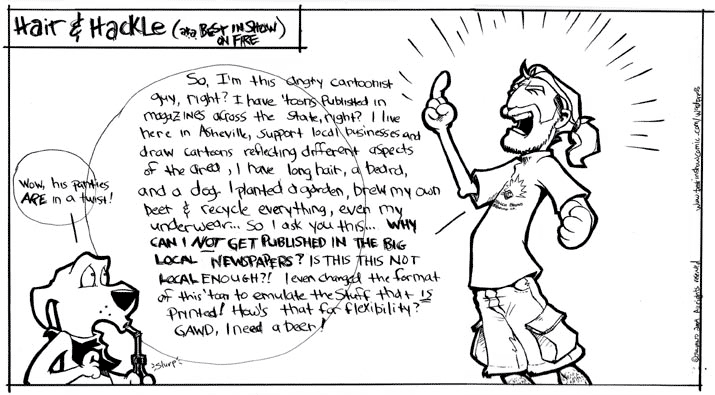 Hair & Hackle (aka BEST IN SHOW
ON FIRE)
So, I'm this angty cartoonist
guy, right? I have 'toons Published in
magazines across the state, right? I live
here in Asheville, support local businesses and
draw cartoons reflecting different aspects
of the area, I have long hair, a beard,
and a dog. I planted a garden, brew my own
beer & recycle everything, even my
underwear... So I ask you this... WHY
CAN I NOT GET PUBLISHED IN THE BIG
LOCAL NEWSPAPERS? IS THIS THIS NOT
LOCAL ENOUGH?! I even changed the format
of this 'toon to emulate the stuff that IS
Printed! How's that for flexibility?
GAWD, I need a beer!
Wow, his panties
ARE in a twist!
Slurp
All rights reserved